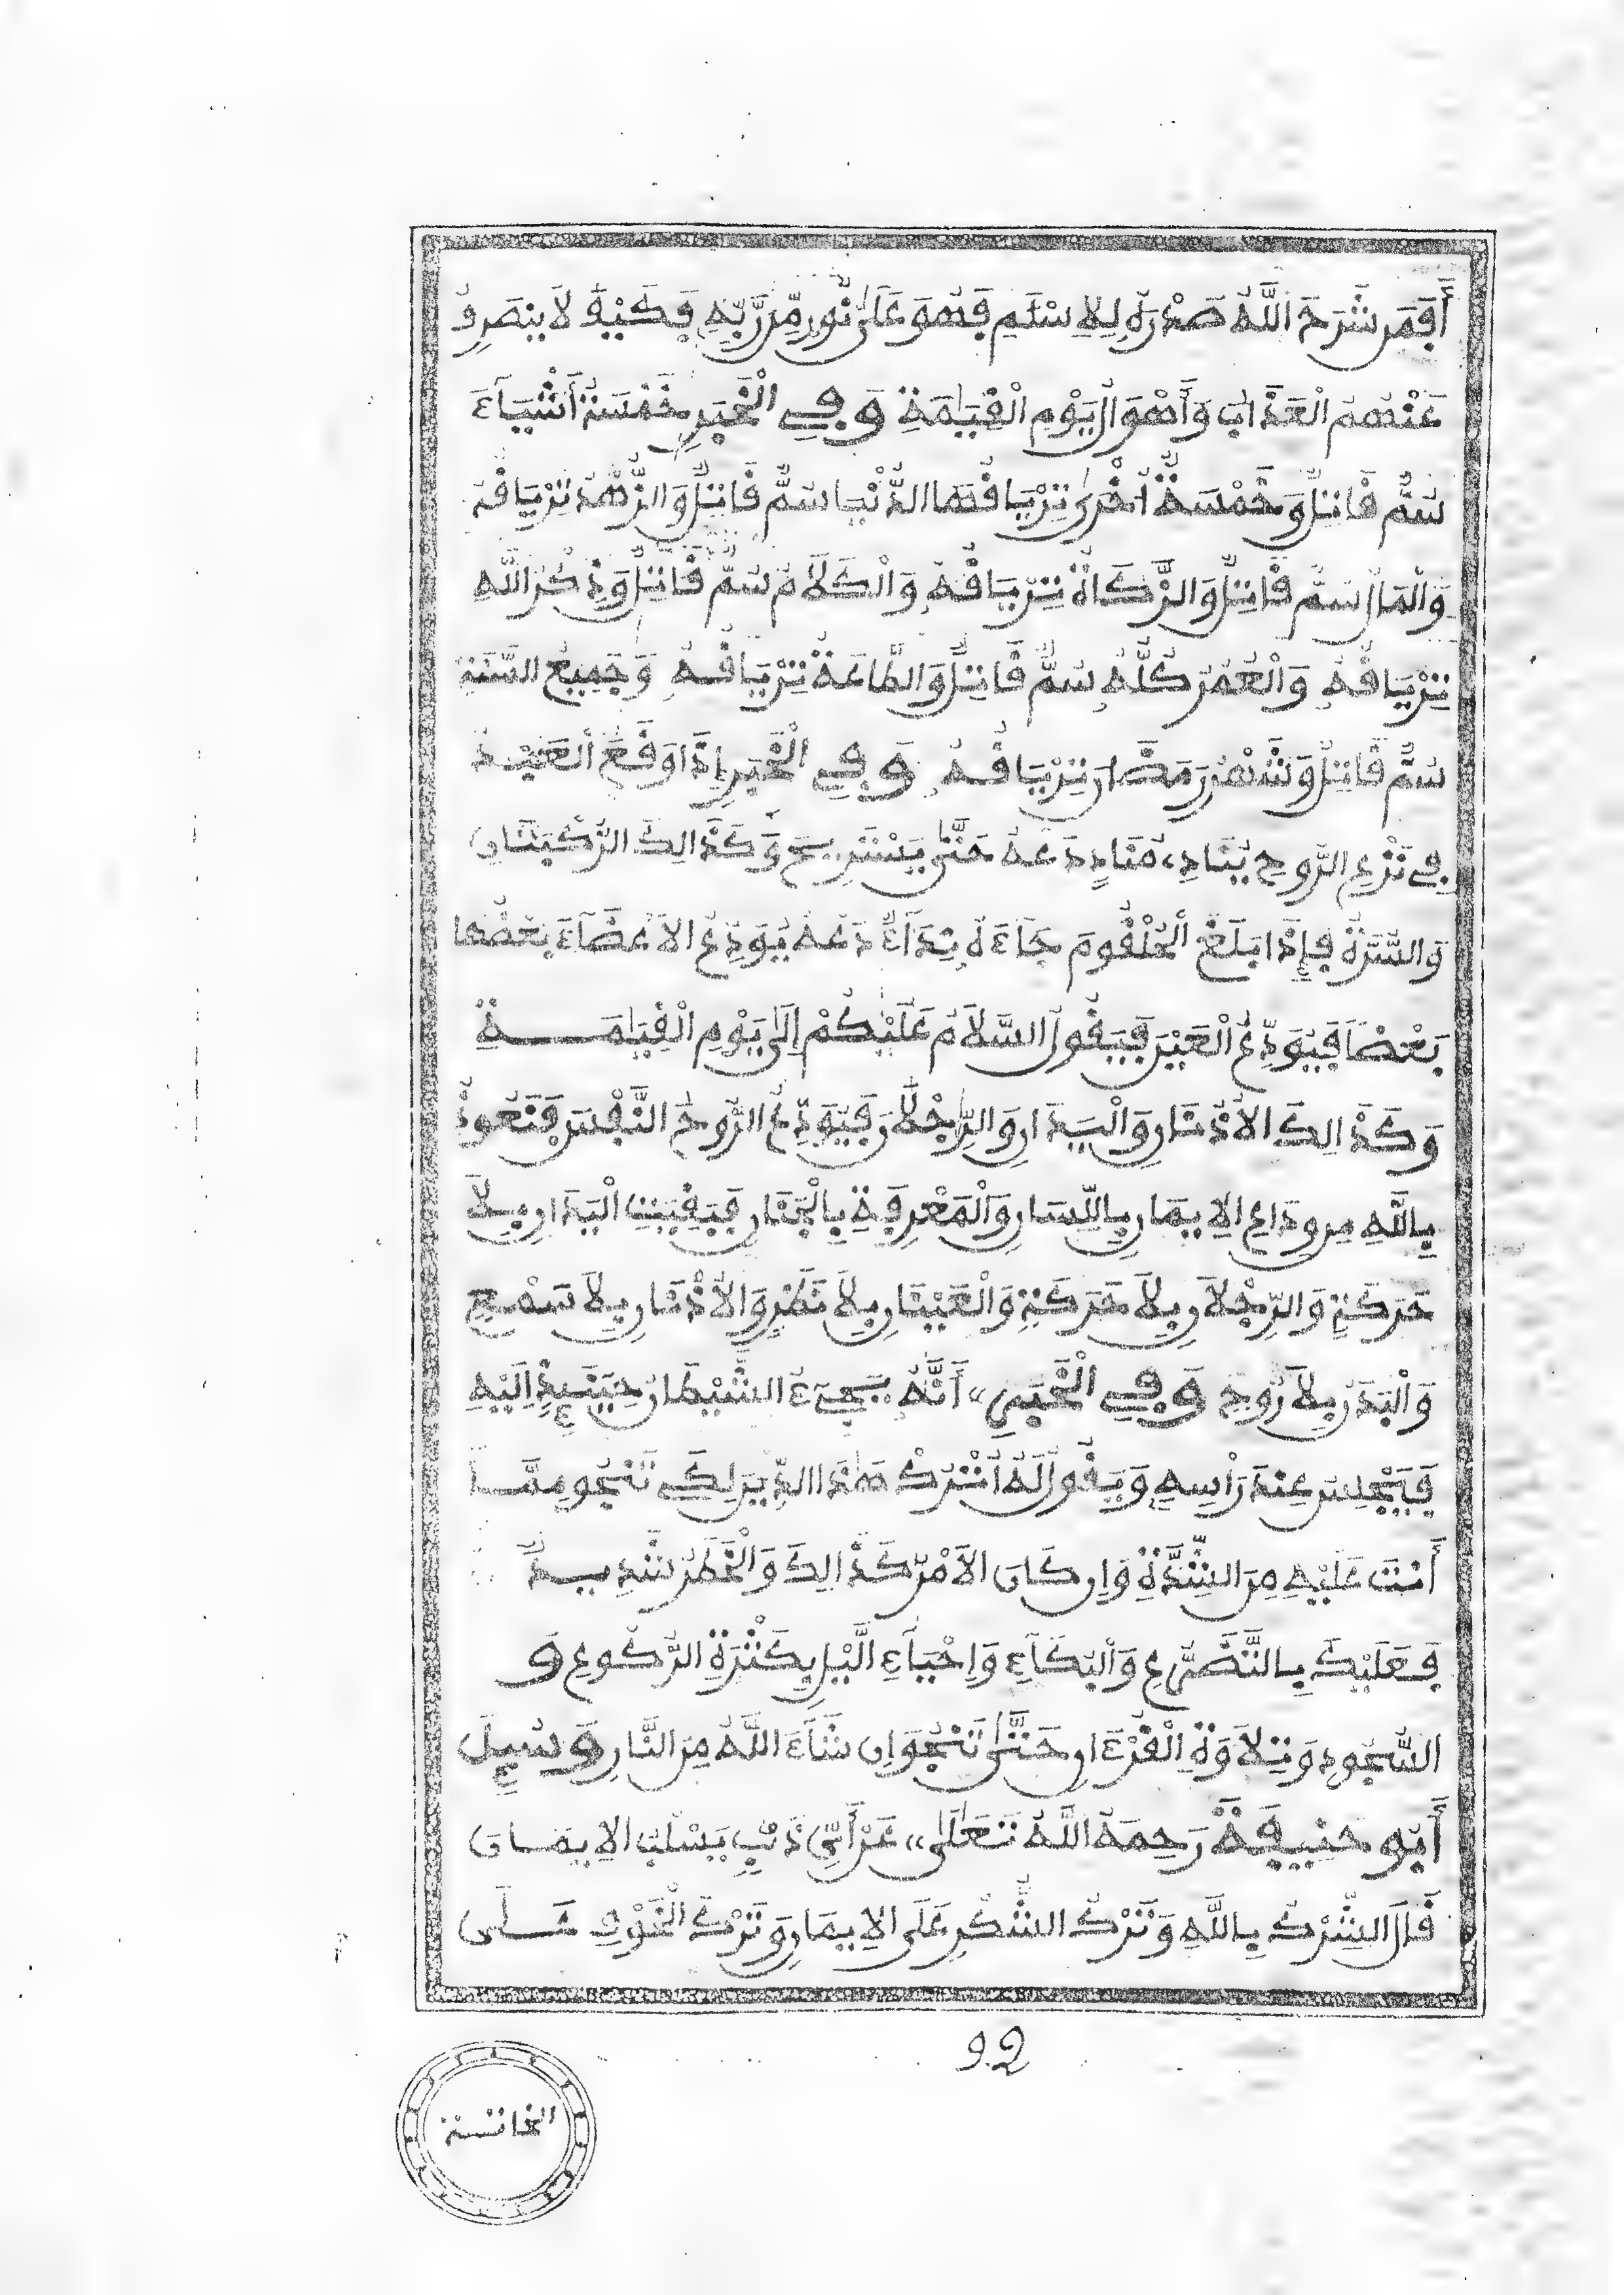 أَفَمَن شَرَحَ اللَّهُ صَدْرَهُ لِلِاسْلَٰمِ فَهُوَ عَلَىٰ نُورٍ مِّن رَّبِّهِ فَكَيْفَ لَا يَنصَرِفُ
عَنْهُمُ الْعَذَابُ وَأَهْوَالُ يَوْمِ الْقِيَٰمَةِ وَفِي الْخَبَرِ خَمْسَةُ أَشْيَآءَ
سُمٌّ قَاتِلٌ وَخَمْسَةٌ أُخْرَىٰ تِرْيَاقُهَا الدُّنْيَا سُمٌّ قَاتِلٌ وَالزُّهْدُ تِرْيَاقُهُ
وَالْمَالُ سُمٌّ قَاتِلٌ وَالزَّكَاةُ تِرْيَاقُهُ وَالْكَلَامُ سُمٌّ قَاتِلٌ وَذِكْرُ اللَّهِ
تِرْيَاقُهُ وَالْعُمُرُ كُلُّهُ سُمٌّ قَاتِلٌ وَالطَّاعَةُ تِرْيَاقُهُ وَجَمِيعُ السَّنَةِ
سُمٌّ قَاتِلٌ وَشَهْرُ رَمَضَانَ تِرْيَاقُهُ وَفِي الْخَبَرِ إِذَا وَقَعَ الْعَبْدُ
فِي نَزْعِ الرُّوحِ يُنَادِي مُنَادٍ دَعْهُ حَتَّىٰ يَسْتَرِيحَ وَكَذَالِكَ الرُّكْبَتَانِ
وَالسُّرَّةُ فَإِذَا بَلَغَ الْحُلْقُومَ جَآءَهُ نِدَآءٌ دَعْهُ يُوَدِّعُ الَاعْضَآءَ بَعْضُهَا
بَعْضًا فَيُوَدِّعُ الْعَيْنَ فَيَقُولُ السَّلَامُ عَلَيْكُمْ إِلَىٰ يَوْمِ الْقِيَٰمَةِ
وَكَذَالِكَ الُاذُنَانِ وَالْيَدَانِ وَالرِّجْلَانِ فَيُوَدِّعُ الرُّوحُ النَّفْسَ فَنَعُوذُ
بِاللَّهِ مِن وِدَاعِ الِايمَانِ بِاللِّسَانِ وَالْمَعْرِفَةِ بِالْجَنَانِ فَيَبْقَيَتِ الْيَدَانِ بِلَا
حَرَكَةٍ وَالرِّجْلَانِ بِلَا حَرَكَةٍ وَالْعَيْنَانِ بِلَا نَظَرٍ وَالُاذُنَانِ بِلَا سَمْعٍ
وَالْبَدَنُ بِلَا رُوحٍ وَفِي الْخَبَرِ أَنَّهُ يَجِيءُ الشَّيْطَانُ حِينَئِذٍ إِلَيْهِ
فَيَجْلِسُ عِندَ رَأْسِهِ وَيَقُولُ لَهُ اتْرُكْ هَٰذَا الدِّينَ لِكَيْ تَنْجُوَ مِمَّا
أَنْتَ عَلَيْهِ مِنَ الشِّدَّةِ وَإِن كَانَ الَامْرُ كَذَالِكَ وَالْخَطَرُ شَدِيدٌ
فَعَلَيْكَ بِالتَّضَرُّعِ وَالْبُكَآءِ وَإِحْيَآءِ الَّيْلِ بِكَثْرَةِ الرُّكُوعِ وَ
السُّجُودِ وَتِلَاوَةِ الْقُرْءَانِ حَتَّىٰ تَنْجُوَ إِن شَآءَ اللَّهُ مِنَ النَّارِ وَسُئِلَ
أَبُو حَنِيفَةَ رَحِمَهُ اللَّهُ تَعَٰلَىٰ عَنْ أَيِّ ذَنْبٍ يَسْلُبُ الِايمَانَ
قَالَ الشِّرْكُ بِاللَّهِ وَتَرْكُ الشُّكْرِ عَلَى الِايمَانِ وَتَرْكُ الْخَوْفِ عَلَى
92